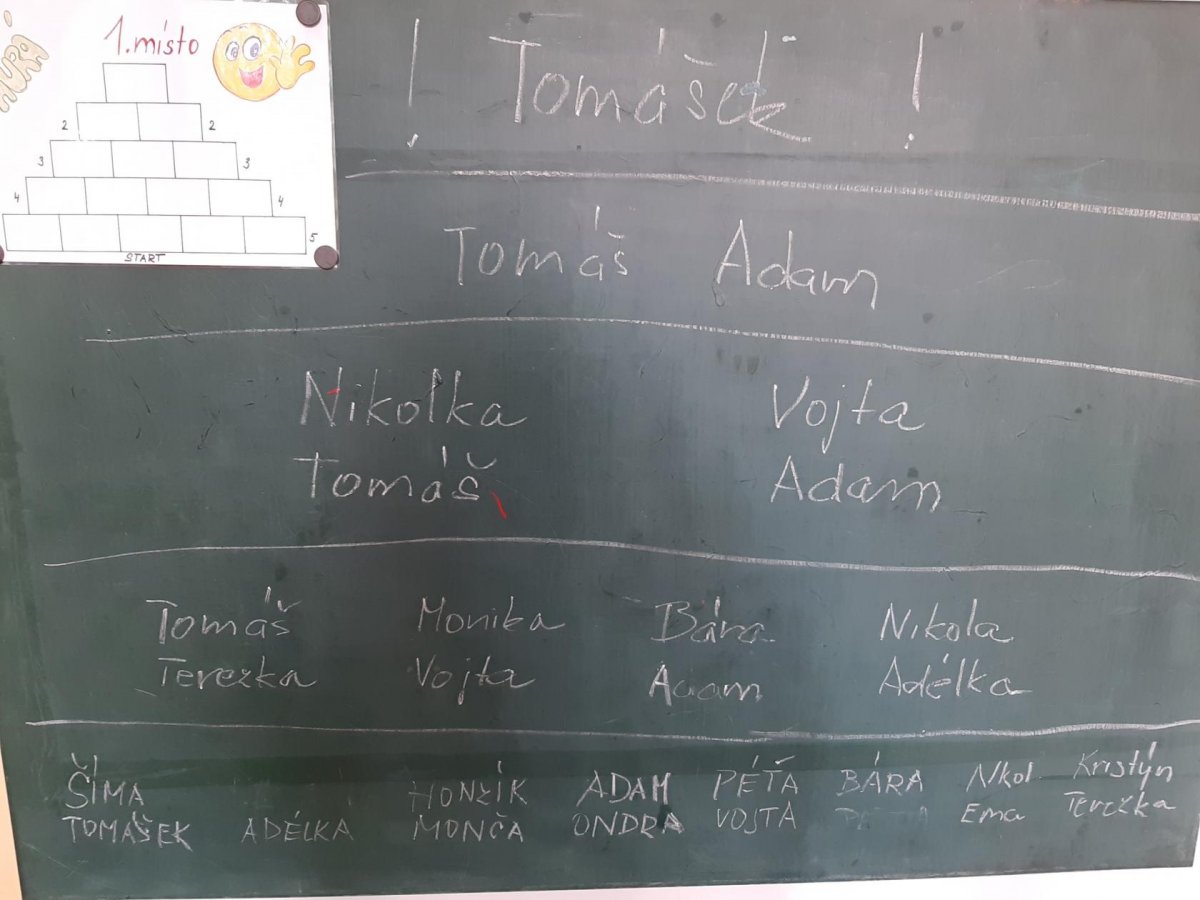 HURÁ
1. místo
2 2
3 3
4 4
5
START
! Tomášek !
Tomáš Adam
Nikolka Vojta
Tomáš Adam
Tomáš Monika Bára Nikola
Terezka Vojta Adam Adélka
ŠÍMA HONZÍK ADAM PÉŤA BÁRA Nikol Kristýn
TOMÁŠEK ADÉLKA MONČA ONDRA VOJTA Ema Terezka